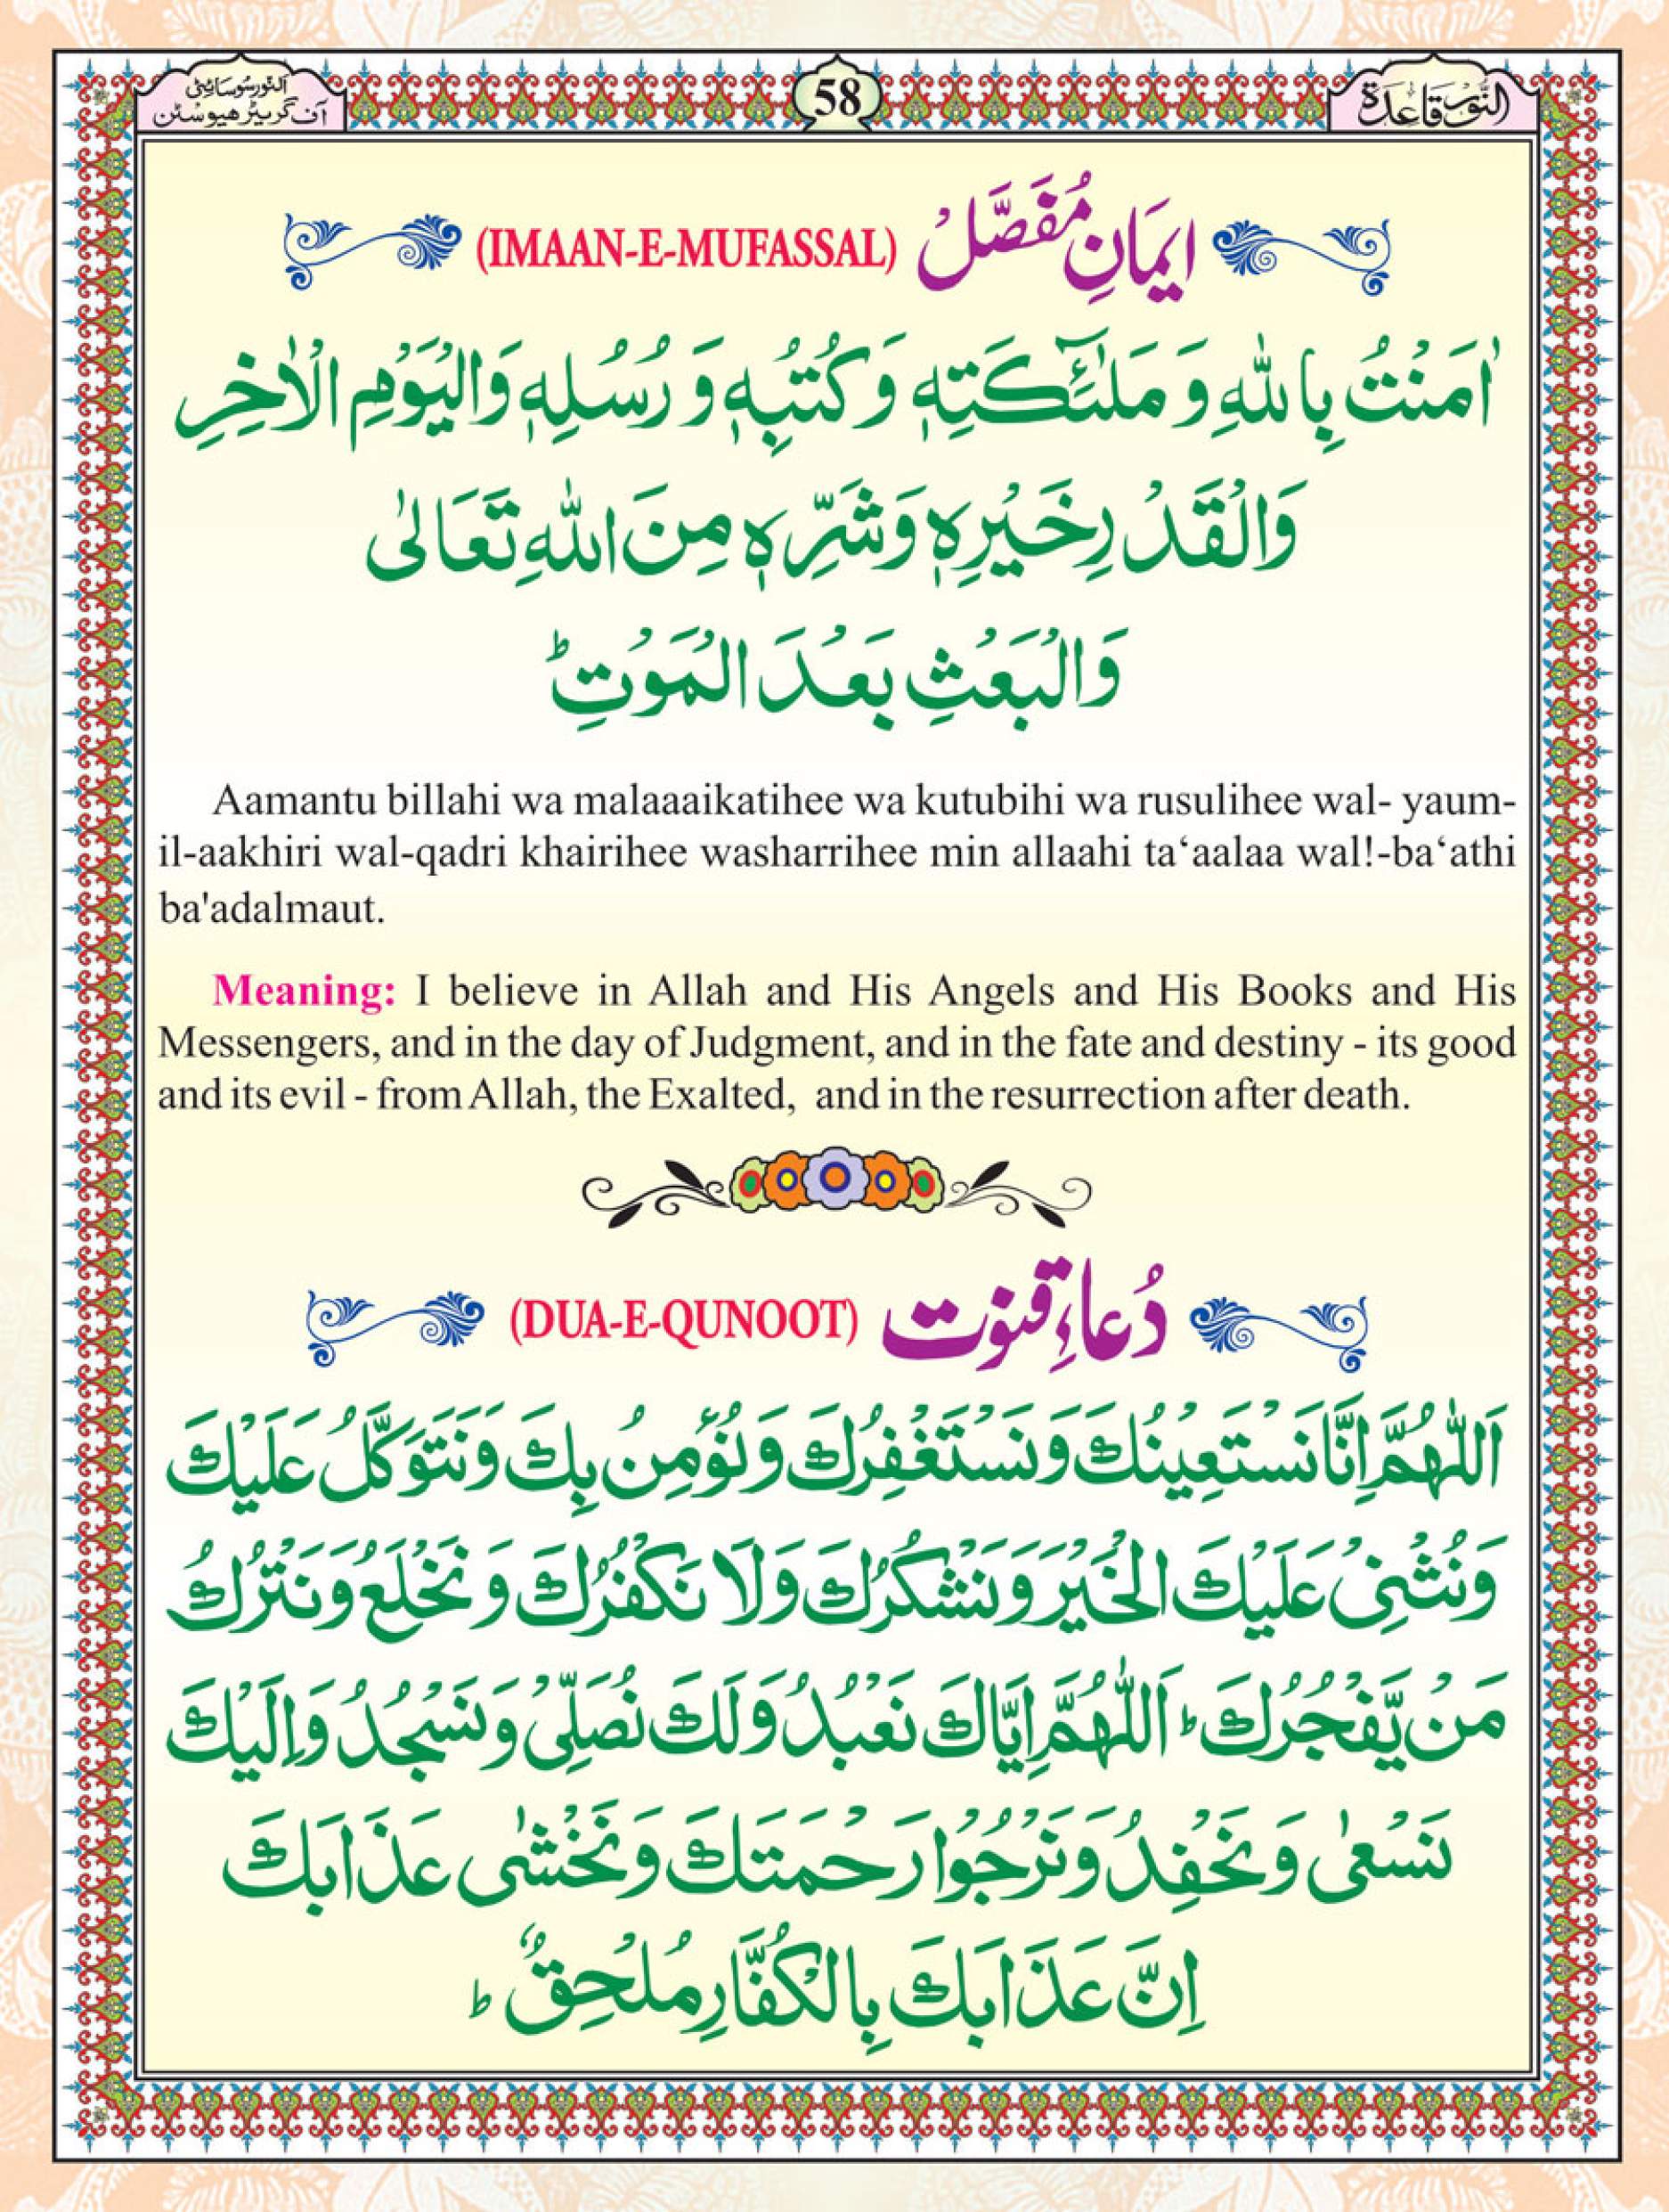 النُّوْر قَاعِدَة
58
النّور سُوسَائِٹی
آف گریٹر ھیوسٹن
اِیمَانِ مُفَصَّلْ (IMAAN-E-MUFASSAL)
اٰمَنْتُ بِاللّٰهِ وَ مَلٰٓئِكَتِهٖ وَ كُتُبِهٖ وَ رُسُلِهٖ وَالْيَوْمِ الْاٰخِرِ
وَالْقَدْرِ خَيْرِهٖ وَشَرِّهٖ مِنَ اللّٰهِ تَعَالٰى
وَالْبَعْثِ بَعْدَ الْمَوْتِ ؕ
Aamantu billahi wa malaaaikatihee wa kutubihi wa rusulihee wal- yaum-
il-aakhiri wal-qadri khairihee washarrihee min allaahi ta‘aalaa wal!-ba‘athi
ba'adalmaut.
Meaning: I believe in Allah and His Angels and His Books and His
Messengers, and in the day of Judgment, and in the fate and destiny - its good
and its evil - from Allah, the Exalted, and in the resurrection after death.
دُعاءِ قنوت (DUA-E-QUNOOT)
اَللّٰهُمَّ اِنَّا نَسْتَعِيْنُكَ وَنَسْتَغْفِرُكَ وَنُؤْمِنُ بِكَ وَنَتَوَكَّلُ عَلَيْكَ
وَنُثْنِيْ عَلَيْكَ الْخَيْرَ وَنَشْكُرُكَ وَلَا نَكْفُرُكَ وَنَخْلَعُ وَنَتْرُكُ
مَنْ يَّفْجُرُكَ ؕ اَللّٰهُمَّ اِيَّاكَ نَعْبُدُ وَلَكَ نُصَلِّيْ وَنَسْجُدُ وَاِلَيْكَ
نَسْعٰى وَنَحْفِدُ وَنَرْجُوْا رَحْمَتَكَ وَنَخْشٰى عَذَابَكَ
اِنَّ عَذَابَكَ بِالْكُفَّارِ مُلْحِقٌ ؕ